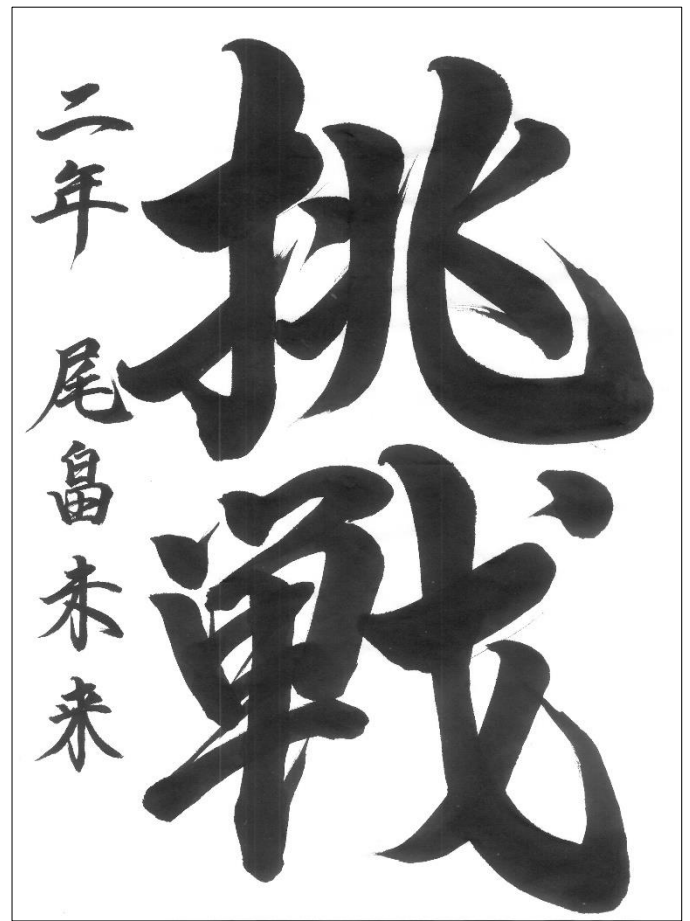 挑戦
二年 尾畠未来